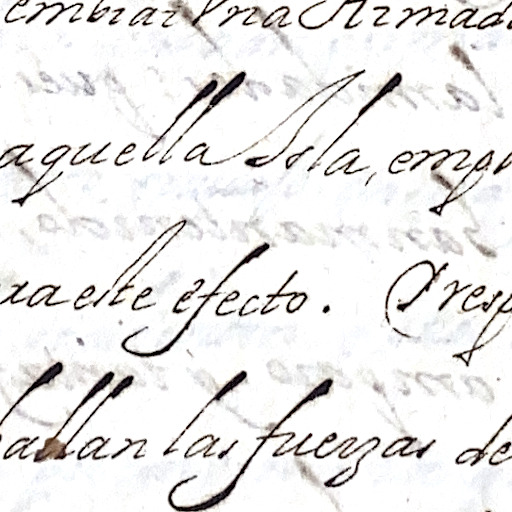 embiar Vna Armada
aquella Isla, emp
ra este efecto. Y resp
hallan las fuerzas de